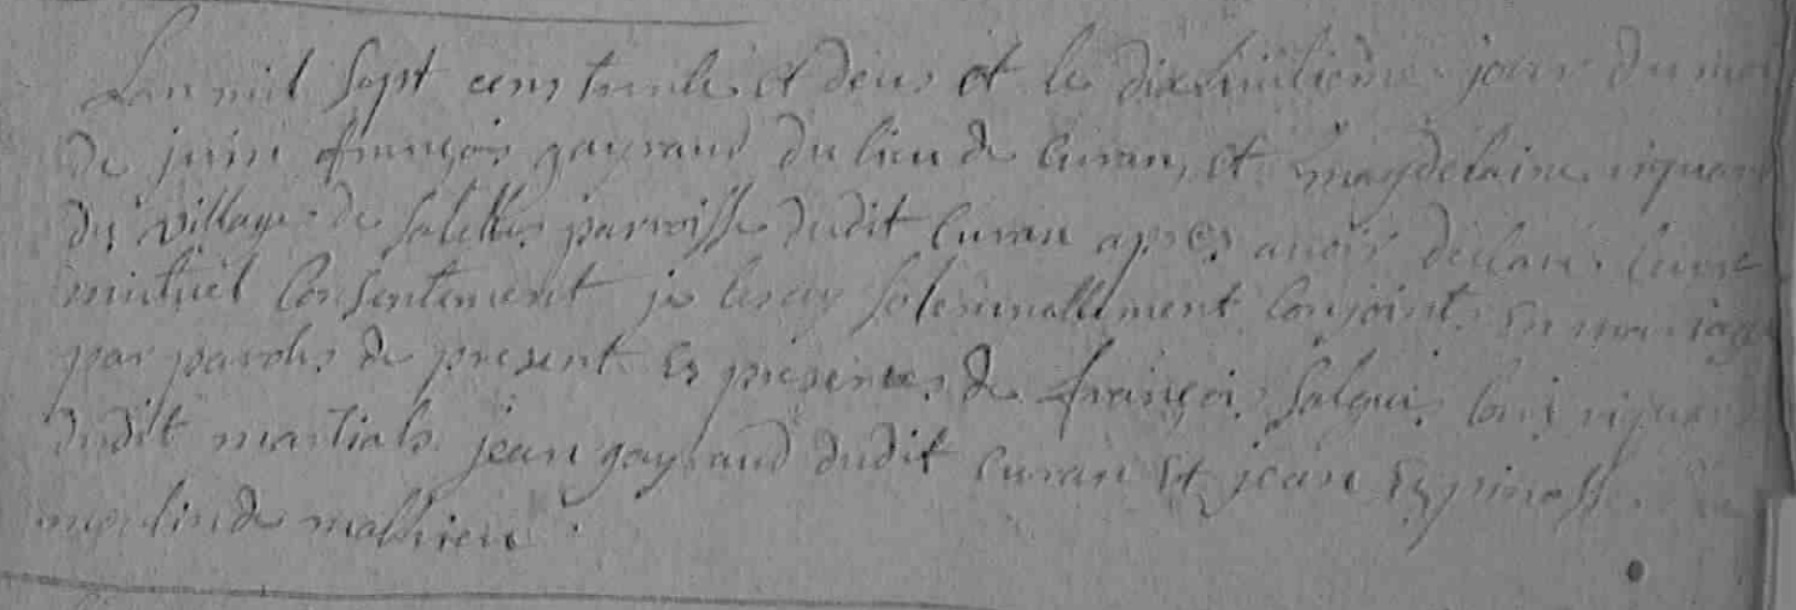 Lan mil sept cens trente et deus et le dixhuitieme jour du moi
de juin françois gayraud du lieu de Curan, et magdelaine viguan
du village de salettes parroisse dudit Curan apres avoir declaré leur
mutuel Consentement je les ay solemnellement Conjoint En mariage
par paroles de present Es presences de françois salgui Louis viguan
dudit martials jean gayraud dudit Curan Et jean Espinasse
moulin de mathieu